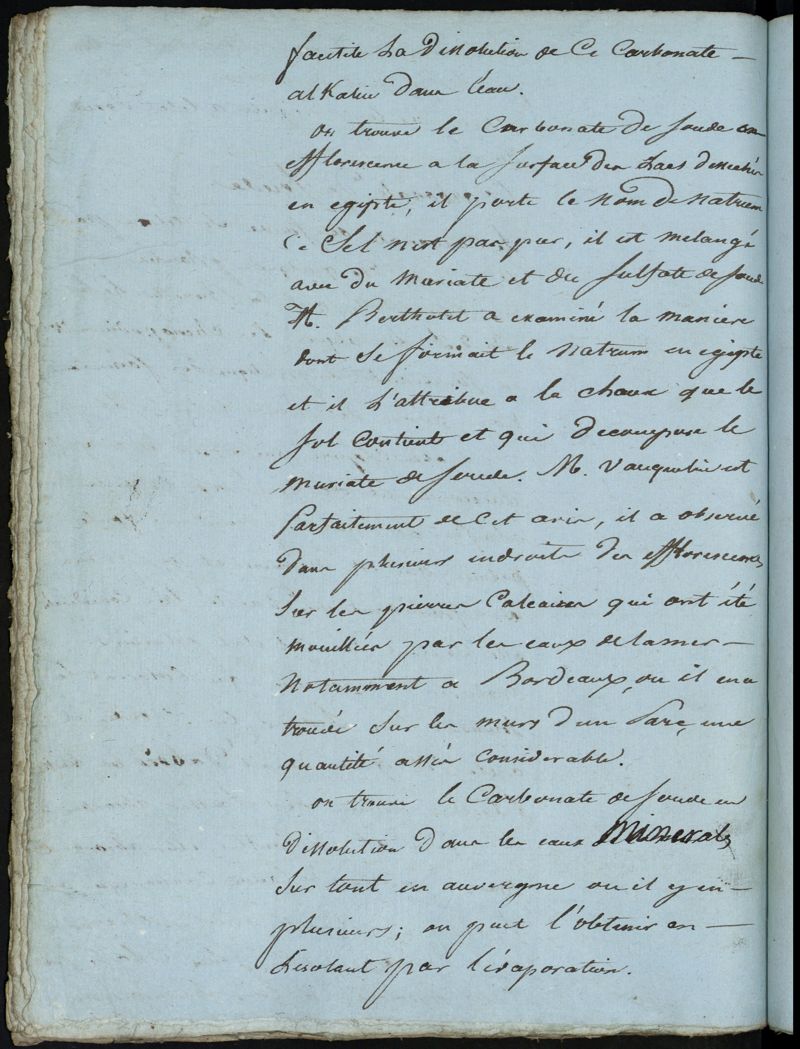 facilite La Dissolution de Ce Carbonate —
alKalin dans l'eau.
on trouve le Carbonate De soude en
efflorescence a la surface des Lacs desséchés
en egipte, il porte le nom de natrum
Ce Sel n'est pas pur, il est melangé
avec du muriate et du sulfate de soude
M. Berthollet a examiné la maniere
dont se formait le natrum en egipte
et il L'attribue a la chaux que le
sol Contient et qui decompose le
muriate de soude. M. Vauquelin est
Parfaitement de Cet avis, il a observé
dans plusieurs endroits des efflorescences
sur les pierres Calcaires qui ont été
mouillées par les eaux de la mer —
Notamment a Bordeaux, ou il en a
trouvé sur les murs d'un Parc, une
quantité assés considerable.
on trouve le Carbonate de soude en
Dissolution dans les eaux Minerales
sur tout en auvergne ou il y en —
plusieurs; on peut l'obtenir en —
L'isolant par l'évaporation.